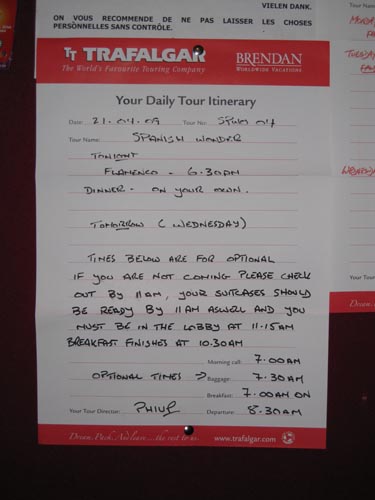 VIELEN DANK.
ON VOUS RECOMMENDE DE NE PAS LAISSER LES CHOSES
PERSÒNNELLES SANS CONTRÔLE.
TT TRAFALGAR
The World's Favourite Touring Company
BRENDAN
WORLDWIDE VACATIONS
Your Daily Tour Itinerary
Date: 21.04.09 Tour No:
Tour Name: SPANISH WONDER
TONIGHT
FLAMENCO - 6.30PM
DINNER - ON YOUR OWN.
TOMORROW (WEDNESDAY)
TIMES BELOW ARE FOR OPTIONAL
IF YOU ARE NOT COMING PLEASE CHECK
OUT BY 11AM, YOUR SUITCASES SHOULD
BE READY BY 11AM ASWELL AND YOU
MUST BE IN THE LOBBY AT 11.15AM
BREAKFAST FINISHES AT 10.30AM
Morning call: 7.00AM
OPTIONAL TIMES → Baggage: 7.30AM
Breakfast: 7.00AM ON
Your Tour Director: PHILIP Departure: 8.30AM
Dream, Pack, And leave... the rest to us.
www.trafalgar.com
Tour Name
Your Tour
Dream, Pack